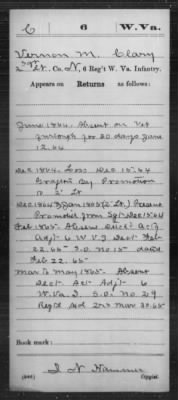 C | 6 | W.Va.
Vernon M. Clary
2nd Lt., Co. N, 6 Reg't W. Va. Infantry.
Appears on
Returns
as follows:
June 1864. Absent on Vet
furlough for 30 days June
12.64
Dec 1864. Loss Dec 15.64
Grafton By Promotion
to 2" Lt
Dec 1864 & Jan 1865 (2" Lt.) Present
Promoted from Sgt Dec 15.64
Feb 1865. Absent Detch'd Act'g
Adjt 6 W V I Dect Feb
22.65 S.O. No 15 dated
Feb 22.65
Mar to May 1865. Absent
Dect. Act Adjt 6
W.Va. I. S.O. No 29
Regtl Hd Qrs Mar 30.65
Book mark:
I N Hammer
(546)
Copyist.